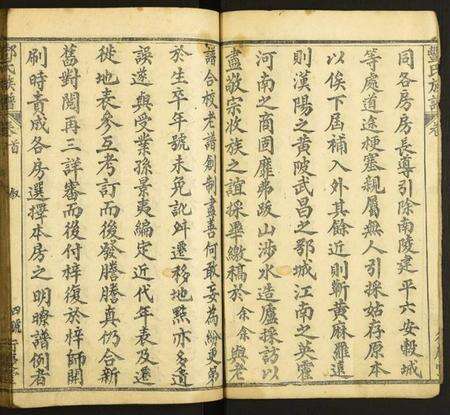 氏族譜 卷
同各房房長導引除南陵建平六安轂城
等處道途梗塞親屬無人引採姑存原本
以俟下屆補入外其餘近則蘄黃麻羅遠
則漢陽之黃陂武昌之鄂城江南之英霍
河南之商固靡弗跋山涉水造廬採訪以
盡敬宗收族之誼採畢繳稿於余余與老
譜合校老譜創制盡善何敢妄為紛更第
於生卒年號未免訛舛遷移地點亦多遺
誤遂與受業孫景夷編定近代年表及遷
徙地表參互考訂而後發謄謄真仍合新
舊對閱再三詳審而後付梓復於梓師開
刷時責成各房選擇本房之明瞭譜例者
氏族譜 卷首 叙 四